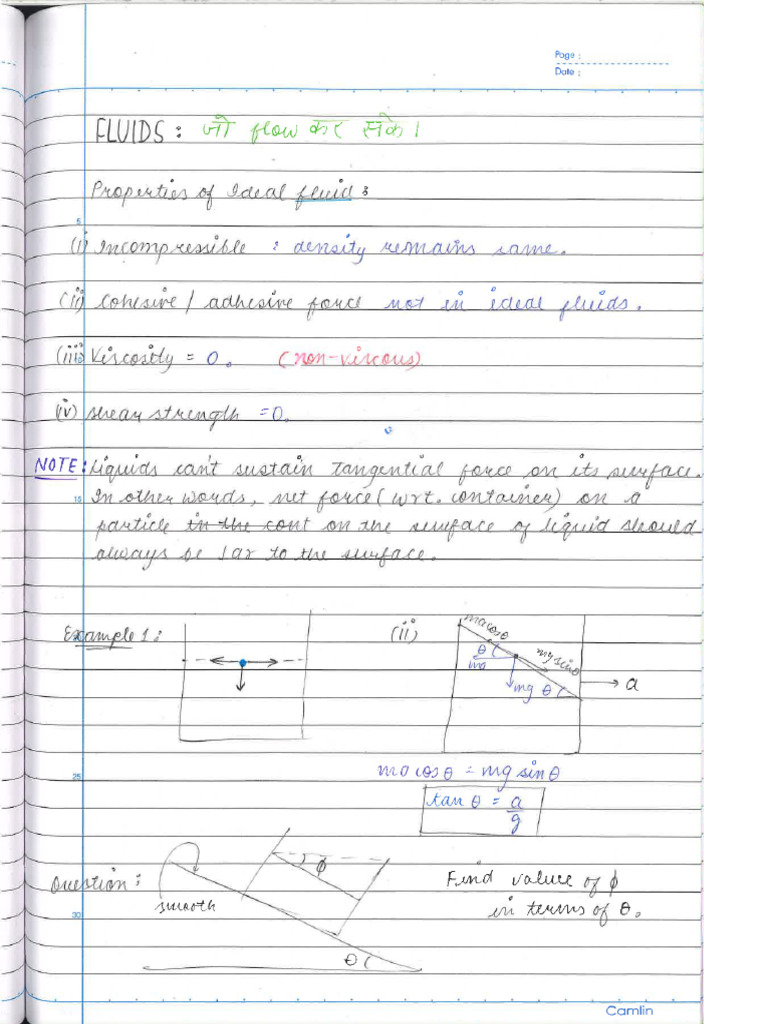 Page :
Date :
FLUIDS : जो flow कर सके।
Properties of Ideal fluid :
5
(i) Incompressible : density remains same.
(ii) Cohesive / adhesive force not in ideal fluids.
(iii) Viscostly = 0. (non-viscous)
(iv) Shear strength = 0.
NOTE : Liquids can't sustain tangential force on its surface.
15 In other words, net force (wrt. container) on a
particle in the cont on the surface of liquid should
always be lar to the surface.
Example 1 : (ii) macosθ
θ mgsinθ
ma
mg θ a
25 macosθ = mgsinθ
tanθ = a/g
Question : ϕ Find value of ϕ
smooth in terms of θ.
30
θ
Camlin